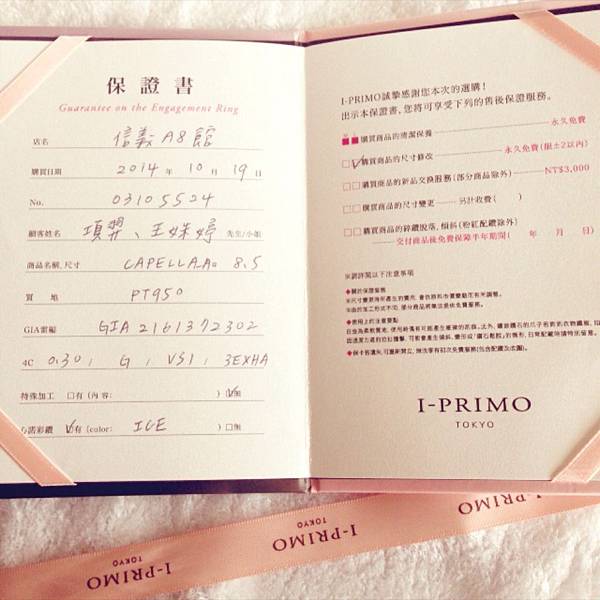 保證書
Guarantee on the Engagement Ring
店名 信義A8館
購買日期 2014年10月19日
No. 03105524
顧客姓名 項羿、王姝婷 先生/小姐
商品名稱,尺寸 CAPELLA_Aa 8.5
質 地 PT950
GIA電編 GIA 2161372302
4C 0.30, G, VS1, 3EXHA
特殊加工 □有 (內容: ) ☑無
彩鑽 ☑有 (color: ICE ) □無
I-PRIMO誠摯感謝您本次的選購!
出示本保證書,您將可享受下列的售後保證服務。
■■購買商品的清潔保養 永久免費
□☑購買商品的尺寸修改 永久免費(限±2以內)
□□購買商品的新品交換服務(部分商品除外) NT$3,000
□□購買商品的尺寸變更 另計收費( )
□□購買商品的碎鑽脫落,傾斜(粉紅配鑽除外)
交付商品後免費保障半年期間( 年 月 日)
※請詳閱以下注意事項
◆關於保證服務
◆使用上的注意要點
I-PRIMO
TOKYO
I-PRIMO
TOKYO
I-PRIMO
TOKYO
I-PRIMO
TOKYO